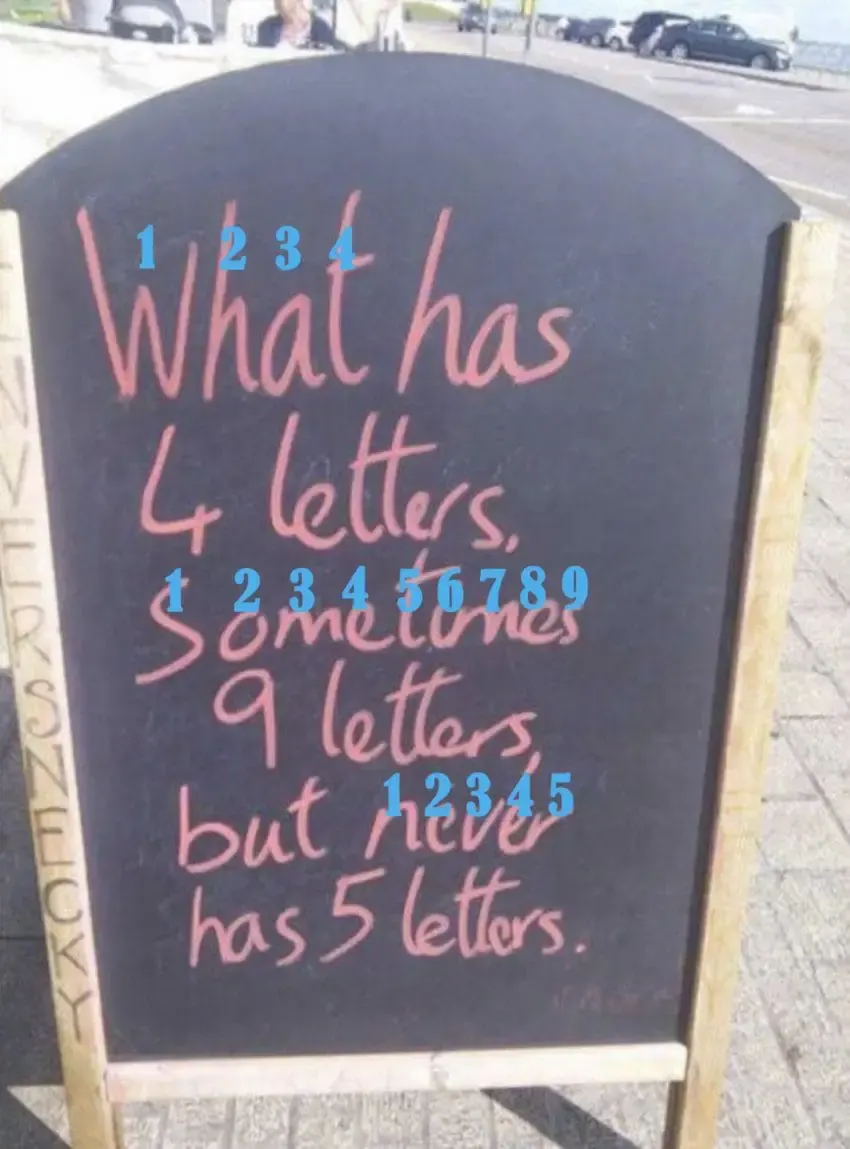 1 2 3 4
What has
4 letters,
1 2 3 4 5 6 7 8 9
Sometimes
9 letters,
1 2 3 4 5
but never
has 5 letters.
INVERSNECKY